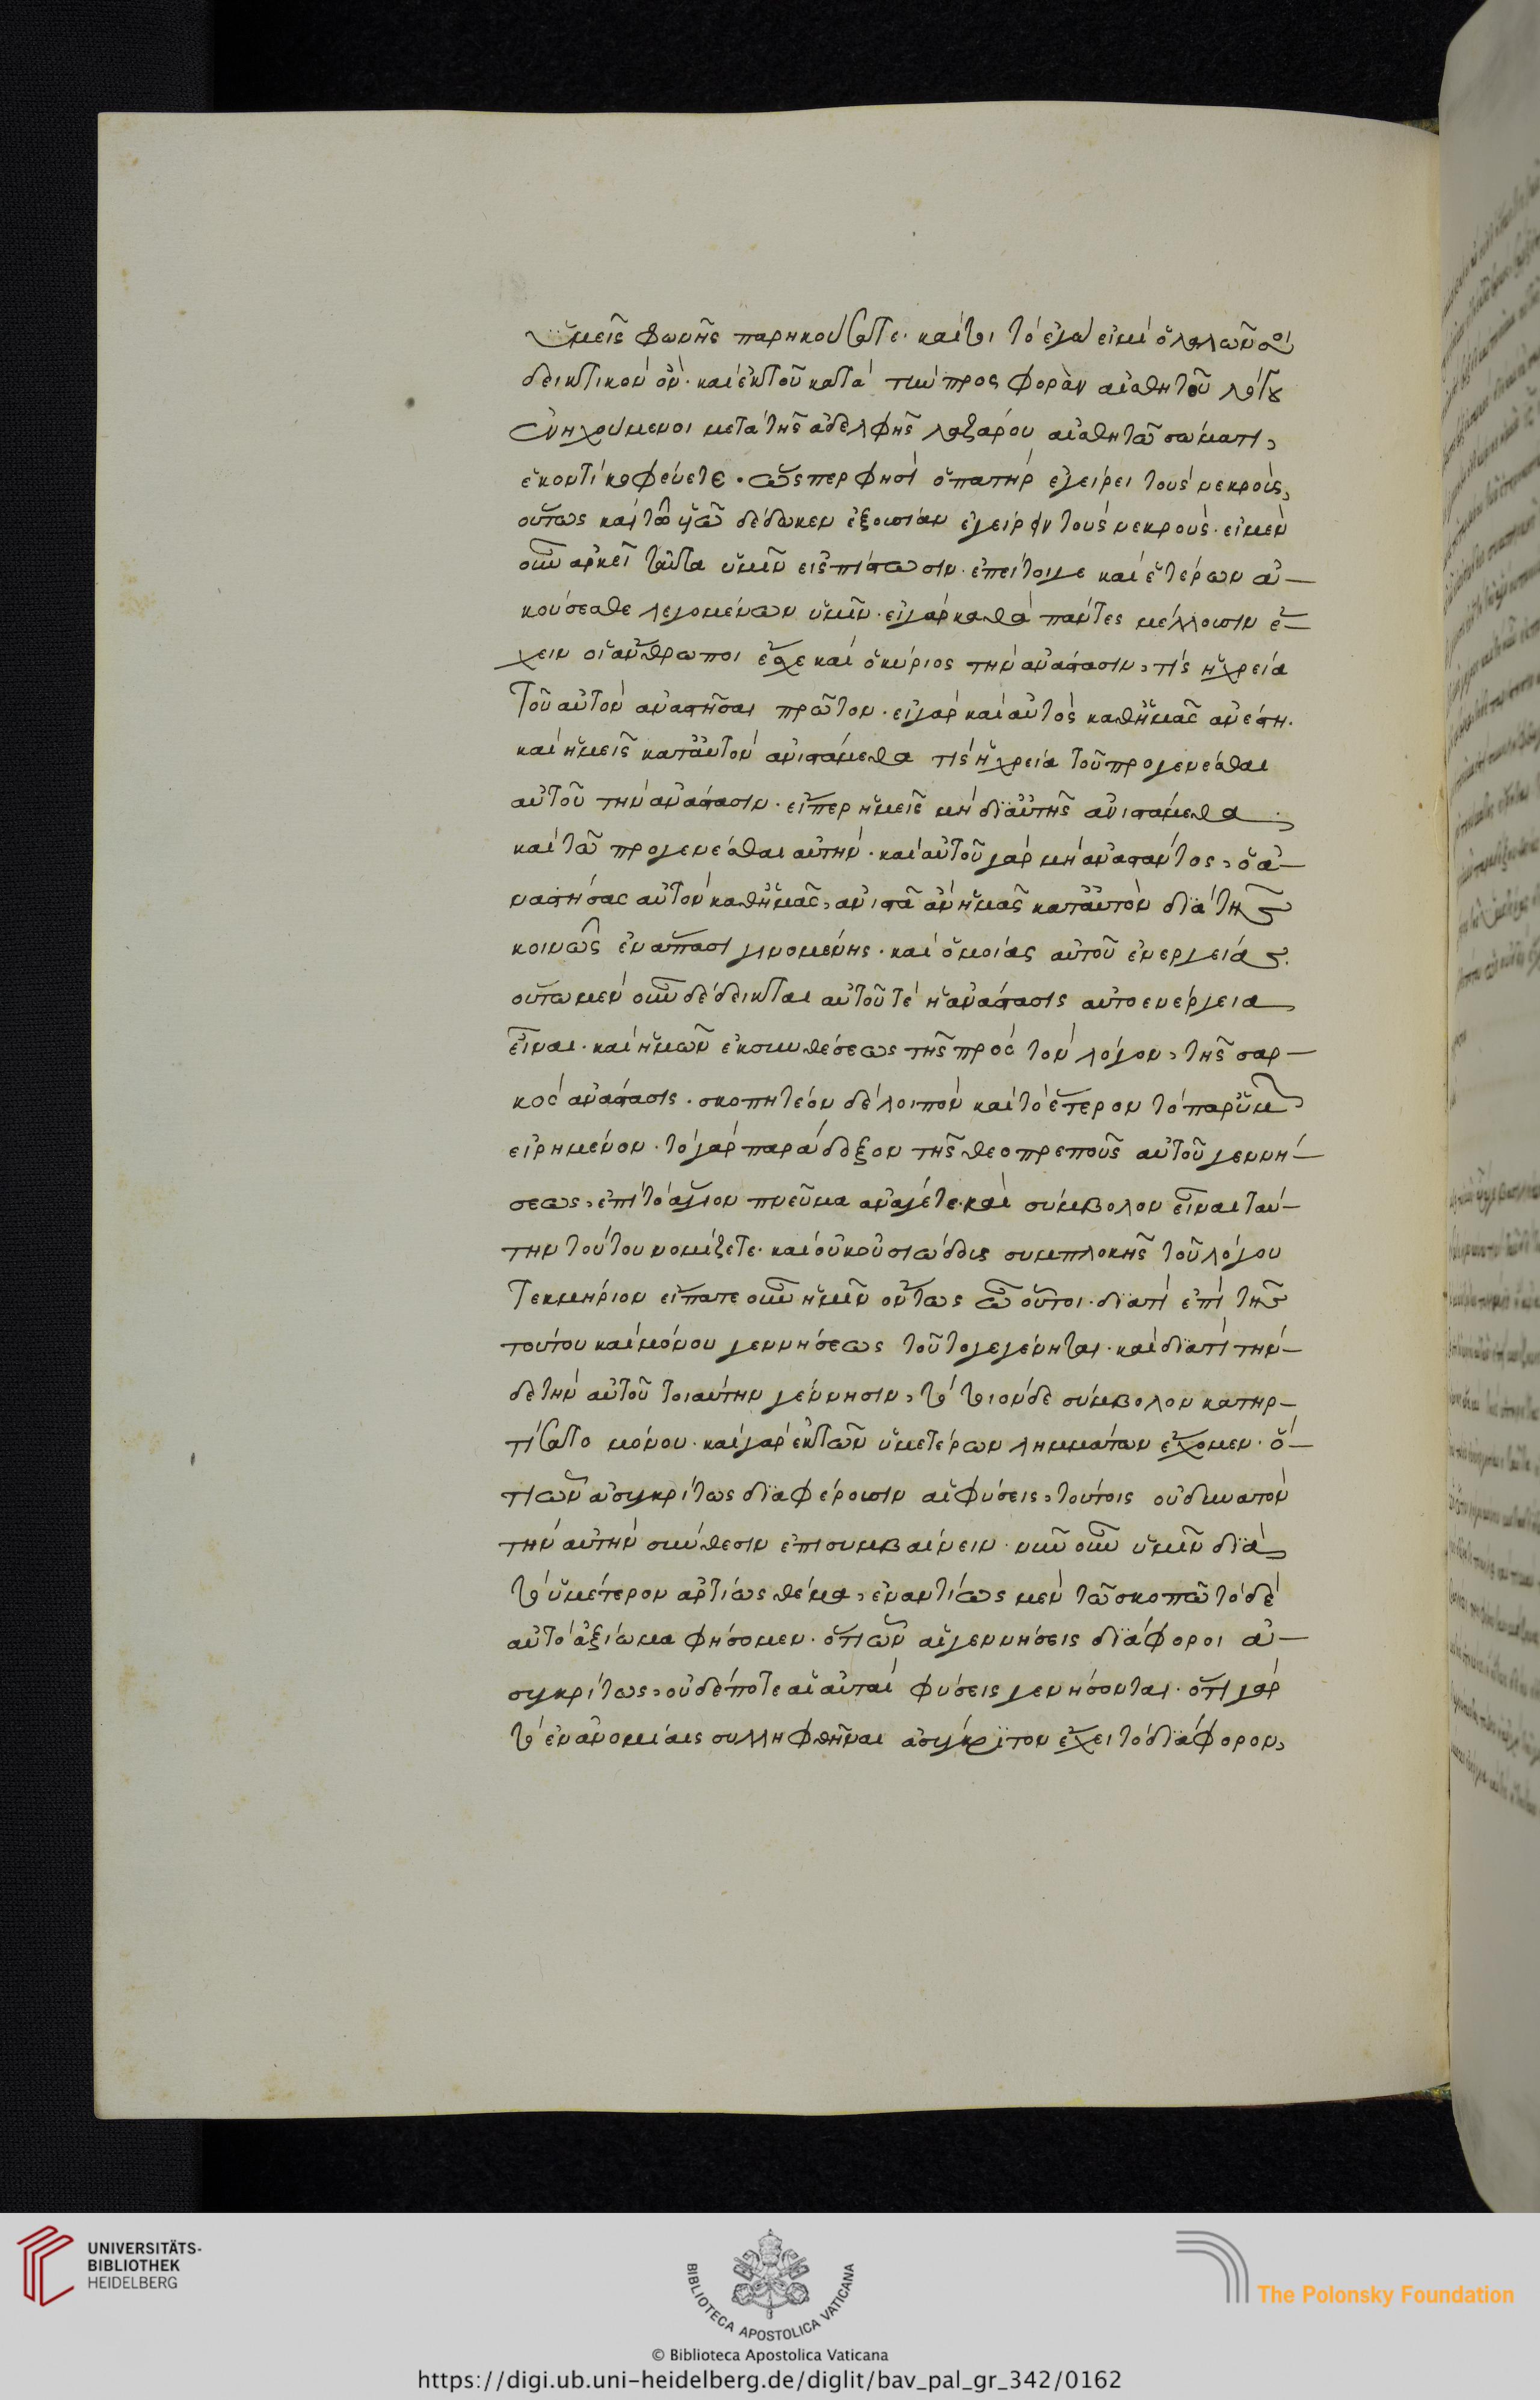 ὑμεῖς φωνῆς παρηκούσατε· καίτοι τὸ ἐγώ εἰμι ὁ λαλῶν σοι
δεικτικὸν ὄν· καὶ ἐκ τοῦ κατὰ τὴν προσφορὰν αἰσθητοῦ λόγου
ἐνηχούμενοι μετὰ τῆς ἀδελφῆς λαζάρου αἰσθητῶ σώματι,
ἑκοντὶ κωφεύετε. ὥσπερ φησὶ ὁ πατὴρ ἐγείρει τοὺς νεκρούς,
οὕτως καὶ τῶ υἱῶ δέδωκεν ἐξουσίαν ἐγείρειν τοὺς νεκρούς· εἰ μὲν
οὖν ἀρκεῖ ταῦτα ὑμῖν εἰς πίστωσιν· ἐπεί τοι γε καὶ ἑτέρων ἀ-
κούσεσθε λεγομένων ὑμῖν· εἰ γὰρ καθὰ πάντες μέλλουσιν ἔ-
χειν οἱ ἄνθρωποι ἔσχε καὶ ὁ κύριος τὴν ἀνάστασιν, τίς ἡ χρεία
τοῦ αὐτὸν ἀναστῆσαι πρῶτον· εἰ γὰρ καὶ αὐτὸς καθ' ἡμᾶς ἀνέστη·
καὶ ἡμεῖς κατ' αὐτὸν ἀνιστάμεθα τίς ἡ χρεία τοῦ προγενέσθαι
αὐτοῦ τὴν ἀνάστασιν· εἴπερ ἡμεῖς μὴ δι' αὐτῆς ἀνιστάμεθα,
καὶ τῶ προγενέσθαι αὐτήν· καὶ αὐτοῦ γὰρ μὴ ἀναστάντος, ὁ ἀ-
ναστήσας αὐτὸν καθ' ἡμᾶς, ἀνιστᾶ ἂν ἡμᾶς κατ' αὐτὸν διὰ τῆς
κοινῶς ἐν ἅπασι γινομένης· καὶ ὁμοίας αὐτοῦ ἐνεργείας.
οὕτω μὲν οὖν δέδεικται αὐτοῦ τὲ ἡ ἀνάστασις αὐτοενέργεια
εἶναι· καὶ ἡμῶν ἐκ συνθέσεως τῆς πρὸς τὸν λόγον, τῆς σαρ-
κὸς ἀνάστασις. σκοπητέον δὲ λοιπὸν καὶ τὸ ἕτερον τὸ παρ' ὑμῶν
εἰρημένον· τὸ γὰρ παράδοξον τῆς θεοπρεποῦς αὐτοῦ γεννή-
σεως, ἐπὶ τὸ ἅγιον πνεῦμα ἀνάγετε· καὶ σύμβολον εἶναι ταύ-
την τούτου νομίζετε· καὶ οὐκ οὐσιώδους συμπλοκῆς τοῦ λόγου
τεκμήριον εἴπατε οὖν ἡμῖν οὕτως ὦ οὗτοι· διατί ἐπὶ τῆς
τούτου καὶ μόνου γεννήσεως τοῦτο γεγένηται· καὶ διατί τήν-
δε τὴν αὐτοῦ τοιαύτην γέννησιν, τὸ τοιόνδε σύμβολον κατηρ-
τίσατο μόνου· καὶ γὰρ ἐκ τῶν ὑμετέρων λημμάτων ἔχομεν· ὅ-
τι ὧν ἀσυγκρίτως διαφέρουσιν αἱ φύσεις, τούτοις οὐ δυνατὸν
τὴν αὐτὴν σύνθεσιν ἐπισυμβαίνειν· νῦν οὖν ὑμῖν διὰ
τὸ ὑμέτερον ἀρτίως θέμα, ἐναντίως μὲν τῶ σκοπῶ τὸ δὲ
αὐτὸ ἀξίωμα φήσομεν· ὅτι ὧν αἱ γεννήσεις διάφοροι ἀ-
συγκρίτως, οὐδέποτε αἱ αὐταὶ φύσεις γενήσονται· ὅτι γὰρ
τὸ ἐν ἀνομίαις συλληφθῆναι ἀσύγκριτον ἔχει τὸ διάφορον,
UNIVERSITÄTS-
BIBLIOTHEK
HEIDELBERG
BIBLIOTECA APOSTOLICA VATICANA
The Polonsky Foundation
© Biblioteca Apostolica Vaticana
https://digi.ub.uni-heidelberg.de/diglit/bav_pal_gr_342/0162